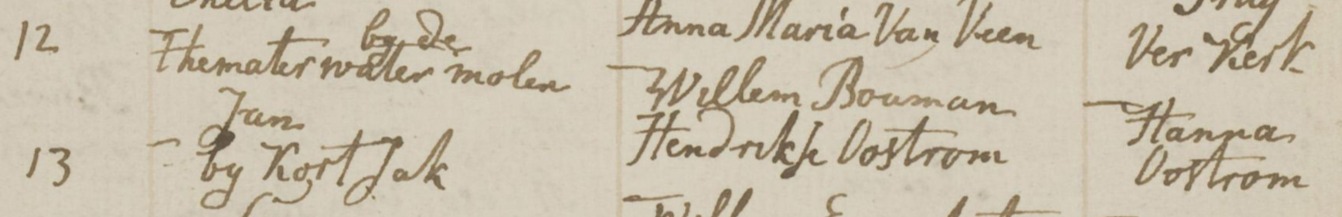 Anna Maria Van Veen
12 by de Ver Kerk
Themater water molen
Willem Bouman
Jan Hanna
13 by Kort Jak Hendrikje Oostrom Oostrom